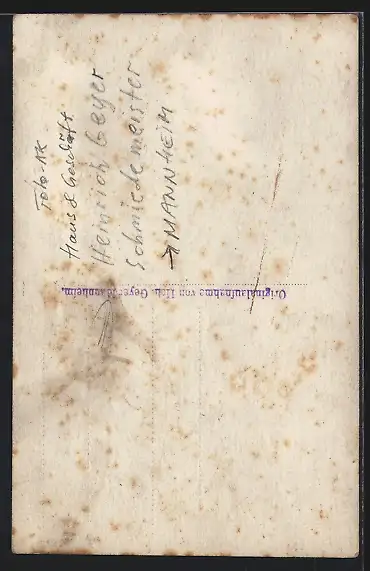 Foto-AK
Haus & Geschäft
Heinrich Geyer
Schmiedemeister
→ MANNHEIM
Originalaufnahme von Hch. Geyer, Mannheim.